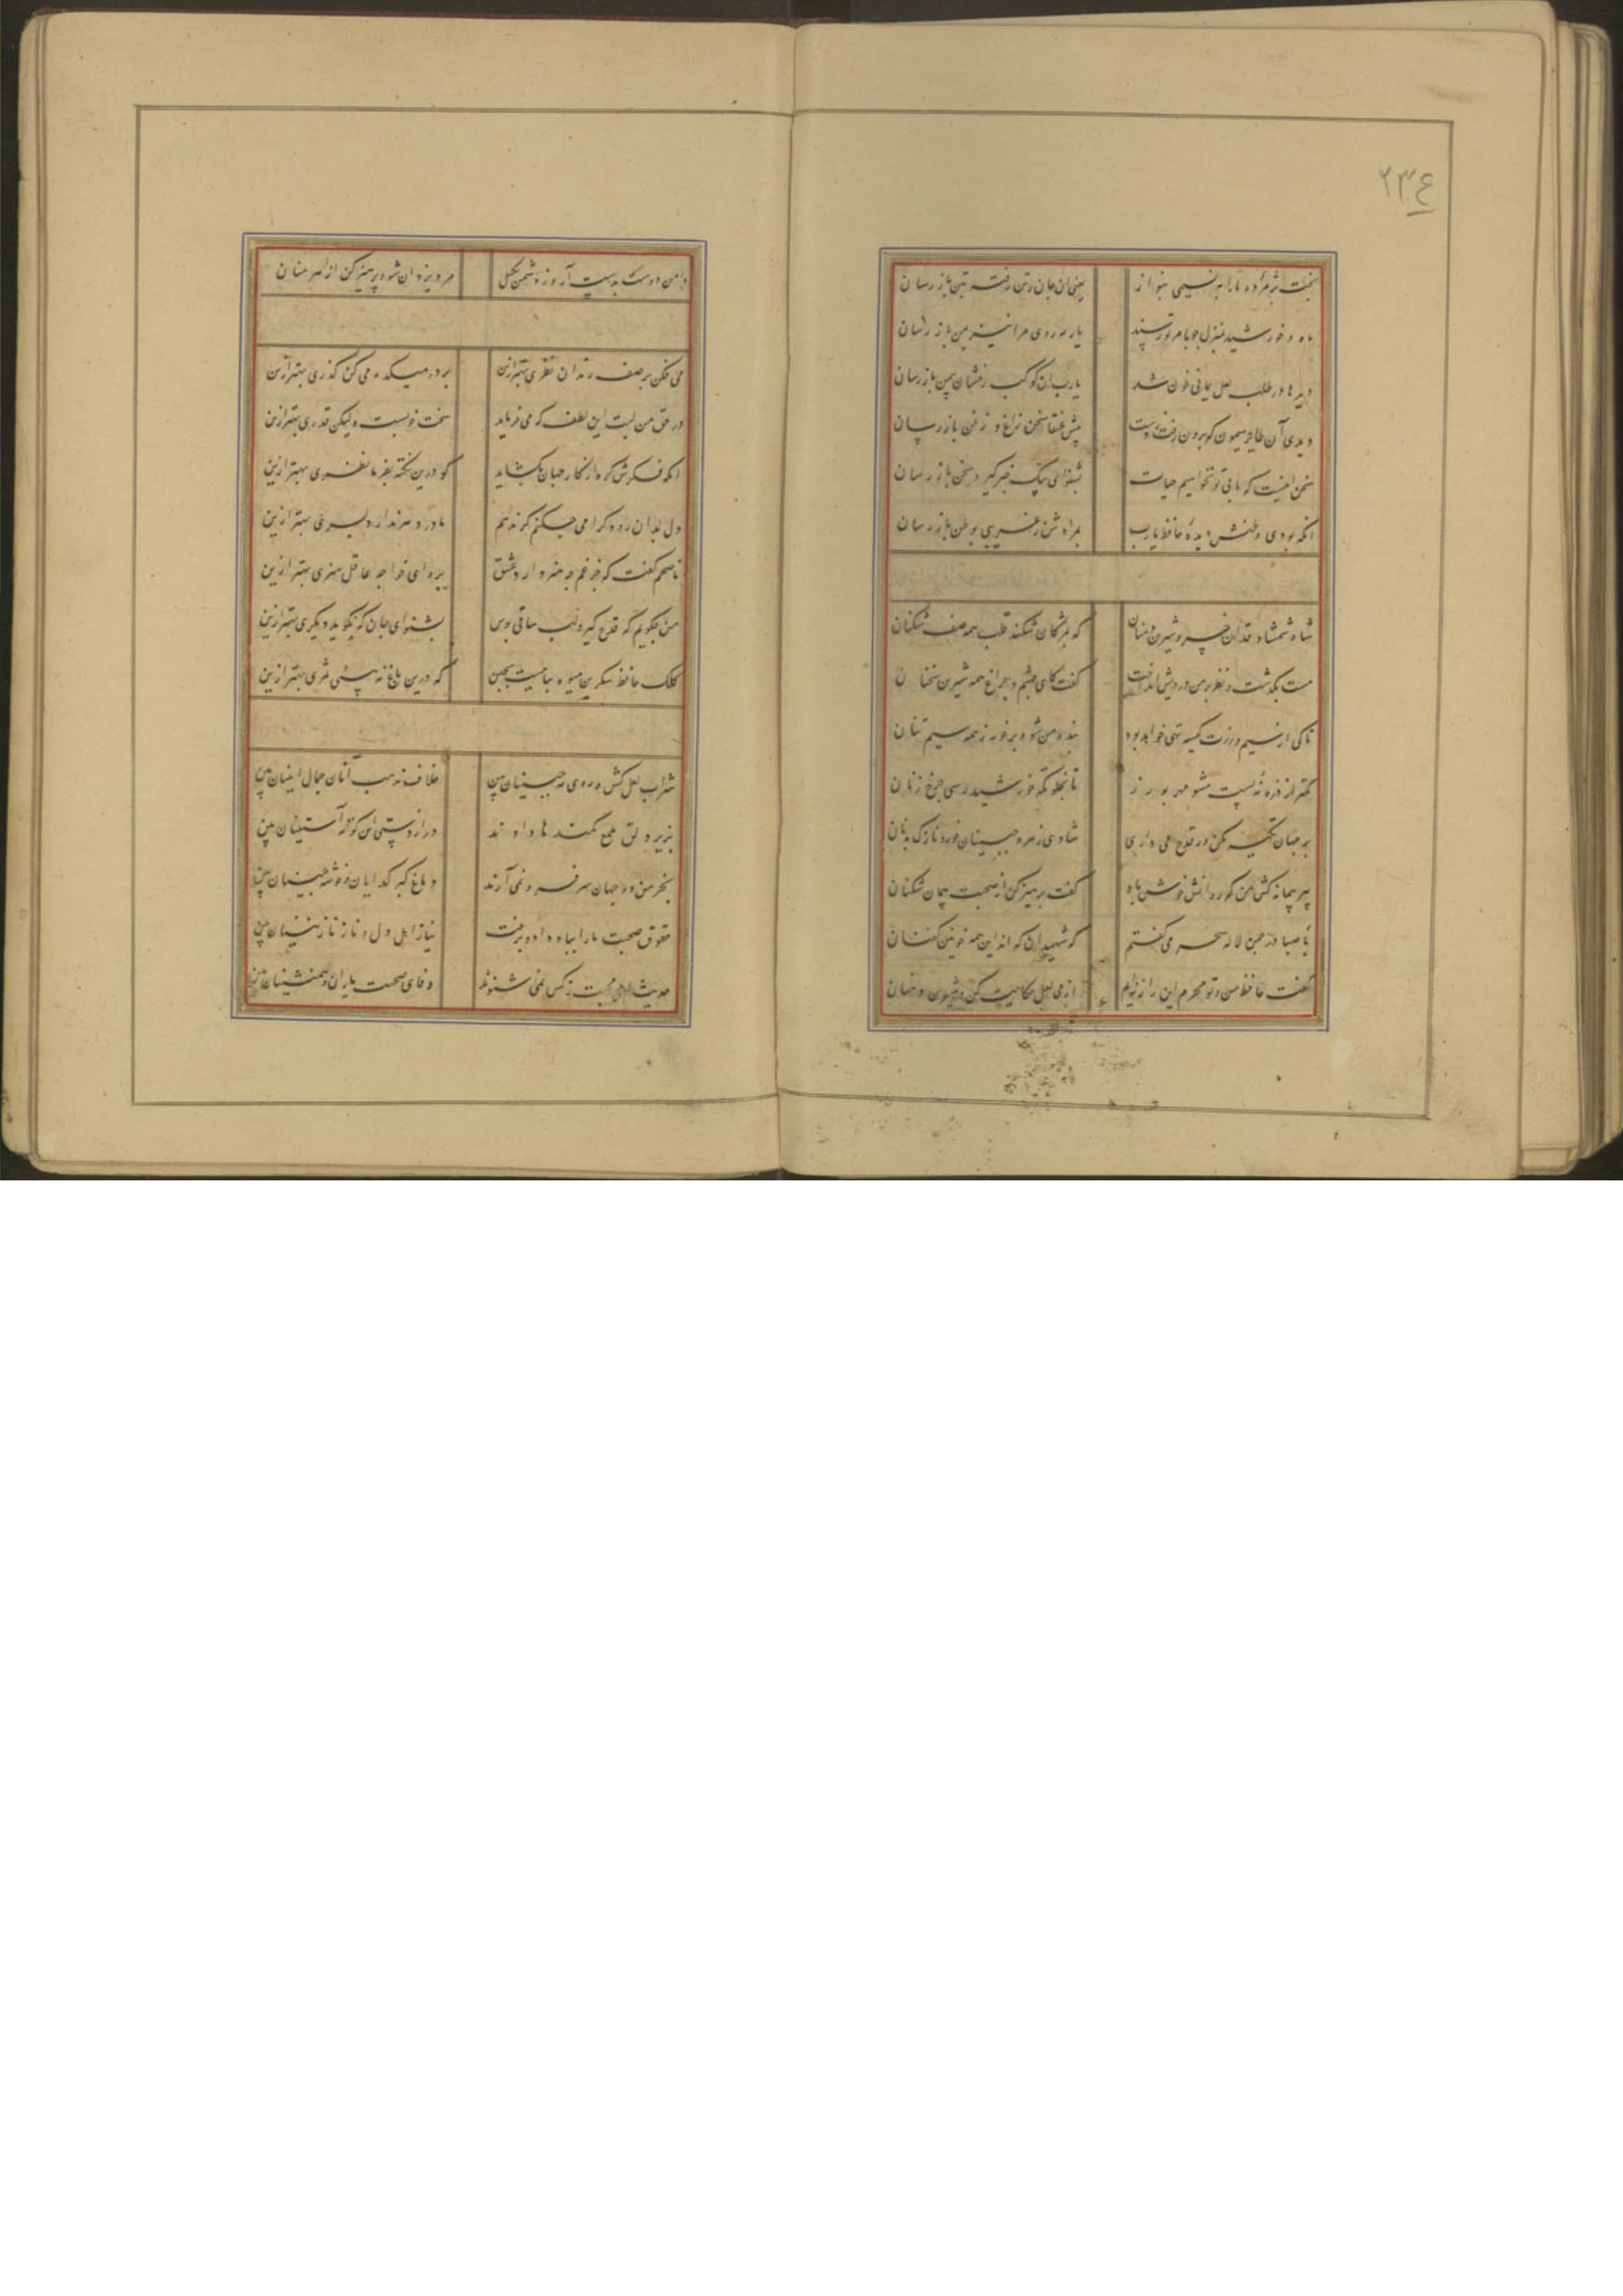 ۲۳۴
بخت پژمرده ما را به نسیمی بنواز یعنی ان جان ز تن رفته بتن باز رسان
ماه و خورشید بمنزل چو بامر تو رسند یار مه روی مرا نیز بمن باز رسان
دیدها در طلب لعل یمانی خون شد یا رب ان کوکب رخشان بیمن باز رسان
دیدی آن طایر میمون که برون رفت ز دست پیش عنقا سخن زاغ و زغن باز رسان
سخن اینست که ما بی تو نخواهیم حیات بشنو ای پیک خبر گیر و سخن باز رسان
انکه بودی وطنش دیده حافظ یا رب بمرادش ز غریبی بوطن باز رسان
شاه شمشاد قدان خسرو شیرین دهنان که بمژگان شکند قلب همه صف شکنان
مست بگذشت و نظر بر من درویش انداخت گفت کای چشم و چراغ همه شیرین سخنان
تا کی از سیم و زرت کیسه تهی خواهد بود بنده من شو و برخور ز همه سیم تنان
کمتر از ذره نه پست مشو مهر بورز تا بخلوتگه خورشید رسی چرخ زنان
بر جهان تکیه مکن ور قدح می داری شادی زهره جبینان خور و نازک بدنان
پیر پیمانه کش من که روانش خوش باد گفت پرهیز کن از صحبت پیمان شکنان
با صبا در چمن لاله سحر می گفتم که شهیدان که اند این همه خونین کفنان
گفت حافظ من و تو محرم این راز نه ایم از می لعل حکایت کن و شیرین دهنان
دامن دوست بدست آر و ز دشمن بگسل مرد یزدان شو و پرهیز کن از اهرمنان
می فکن بر صف رندان نظری بهتر ازین بر در میکده می کن گذری بهتر ازین
در حق من لبت این لطف که می فرماید سخت خوبست ولیکن قدری بهتر ازین
انکه فکرش گره از کار جهان بگشاید گو درین نکته بفرما نظری بهتر ازین
دل بدان رود گرامی چکنم گر ندهم مادر دهر ندارد پسری بهتر ازین
ناصحم گفت که جز غم چه هنر دارد عشق برو ای خواجه عاقل هنری بهتر ازین
من چو گویم که قدح گیر و لب ساقی بوس بشنو ای جان که نگوید دیگری بهتر ازین
کلک حافظ شکرین میوه نباتیست بچین که درین باغ نه بینی ثمری بهتر ازین
شراب لعل کش و روی مه جبینان بین خلاف مذهب آنان جمال اینان بین
بزیر دلق ملمع کمندها دارند دراز دستی این کوته آستینان بین
بخرمن دو جهان سر فرو نمی آرند دماغ کبر گدایان و خوشه چینان بین
حقوق صحبت ما را بباد داد و برفت نیاز اهل دل و ناز نازنینان بین
حدیث اهل محبت ز کس نمی شنوند وفای صحبت یاران و همنشینان بین